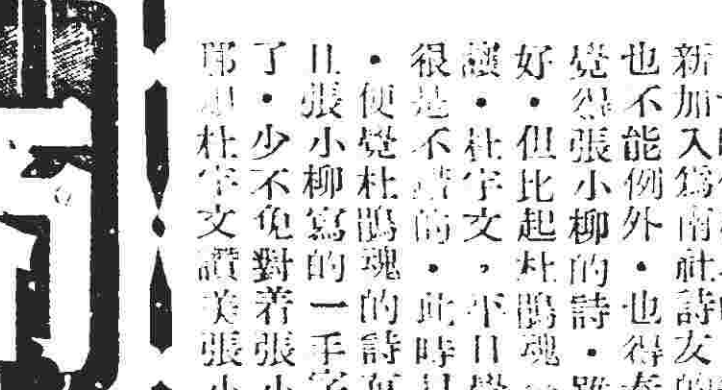 新加入爲南社詩友的
也不能例外・也得
覺得張小柳的詩・
好・但比起杜鵑魂
・杜宇文，平日
很是不錯的・此時
・便覺杜鵑魂的詩
且張小柳寫的一手字
了・少不免對着張小
那跟杜宇文讚美張小